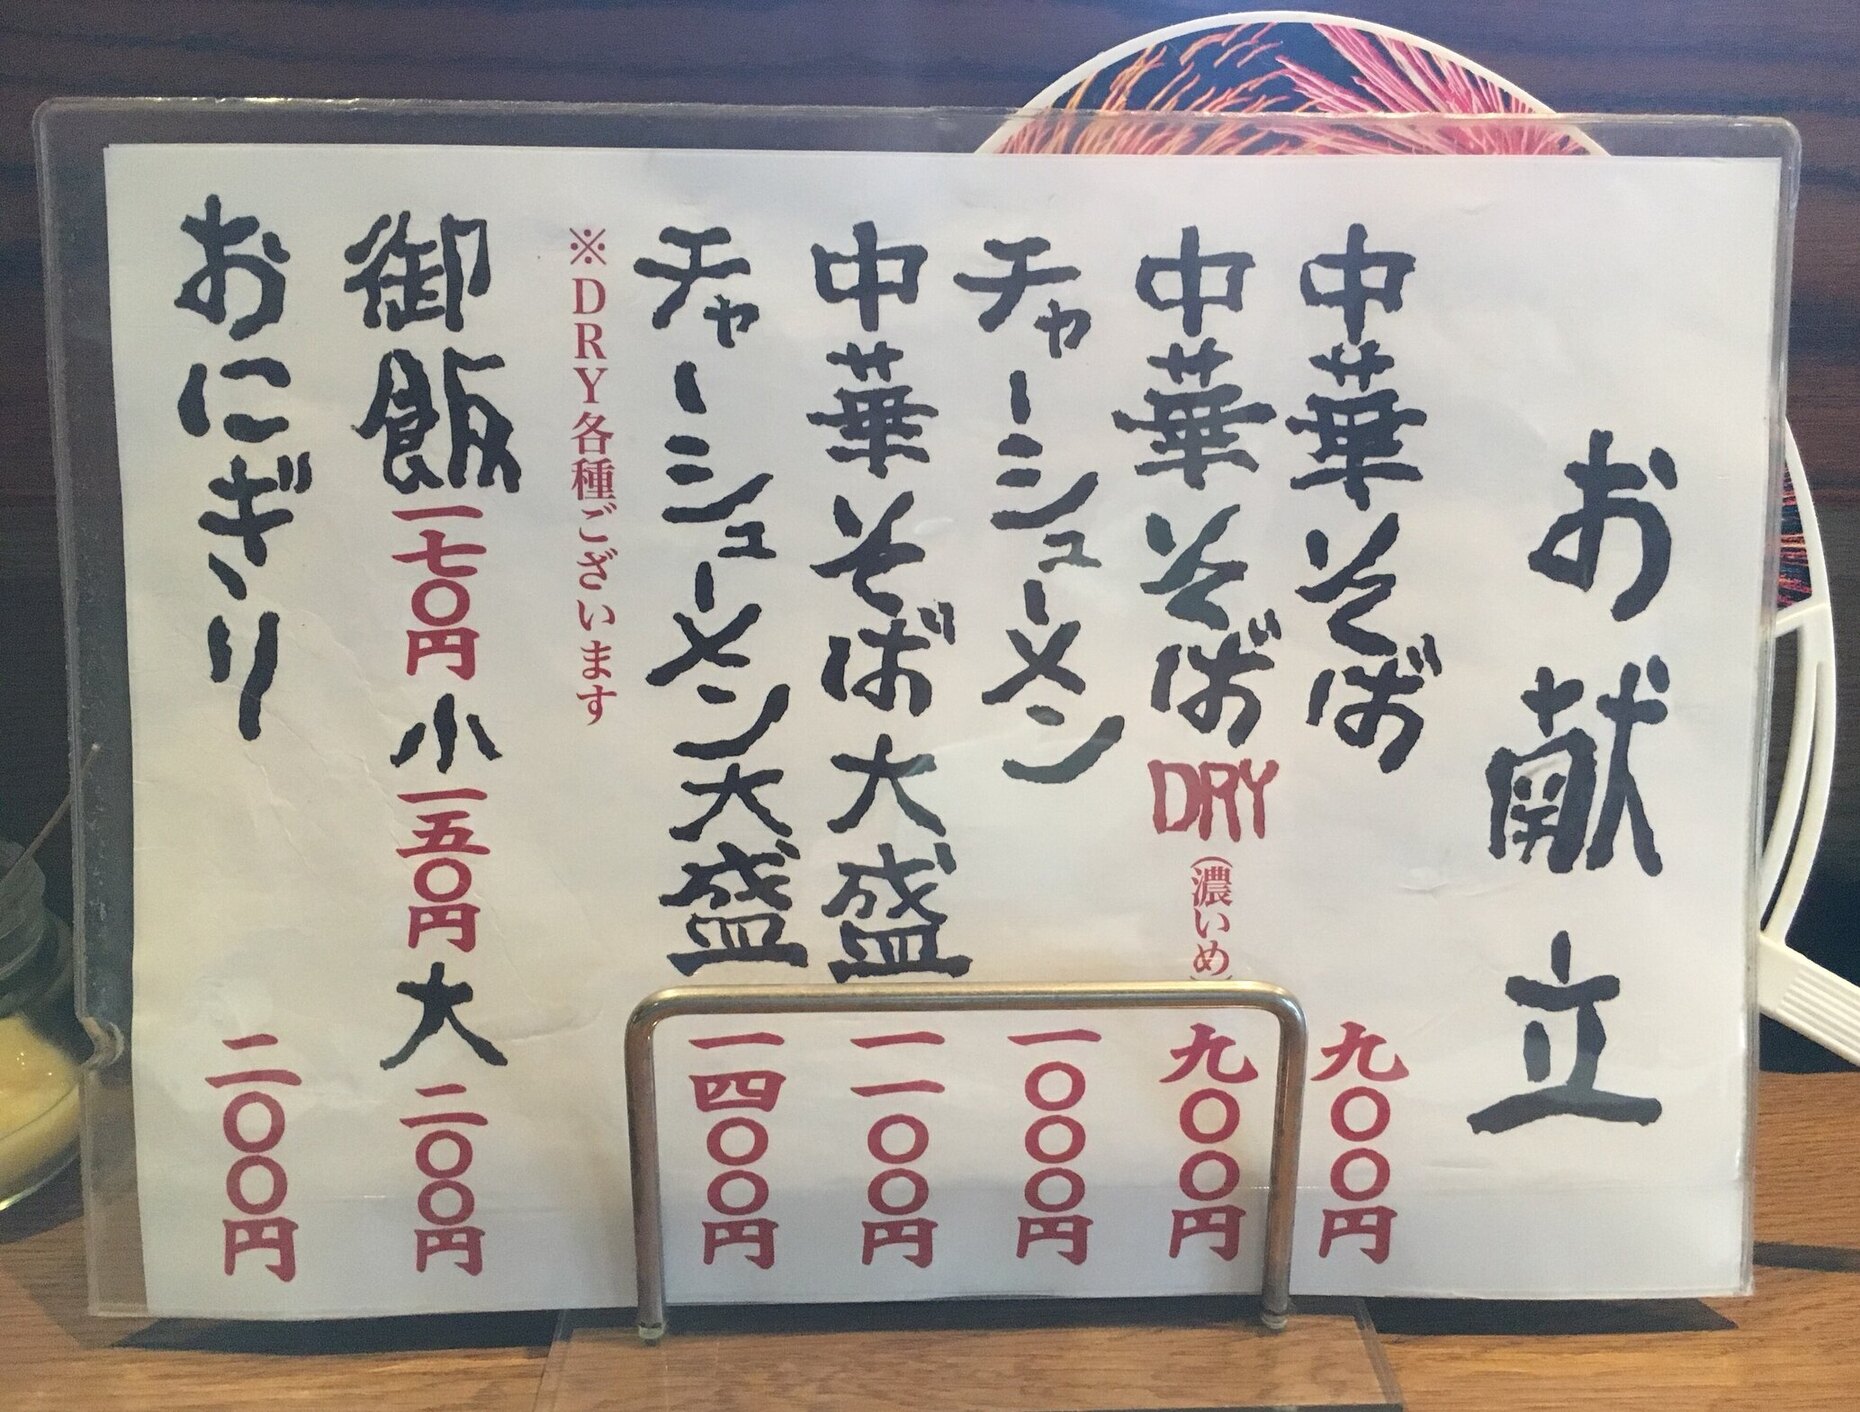 お献立
中華そば 九〇〇円
中華そばDRY(濃いめ) 九〇〇円
チャーシューメン 一〇〇〇円
中華そば大盛 一一〇〇円
チャーシューメン大盛 一四〇〇円
※DRY各種ございます
御飯一七〇円小一五〇円大二〇〇円
おにぎり 二〇〇円